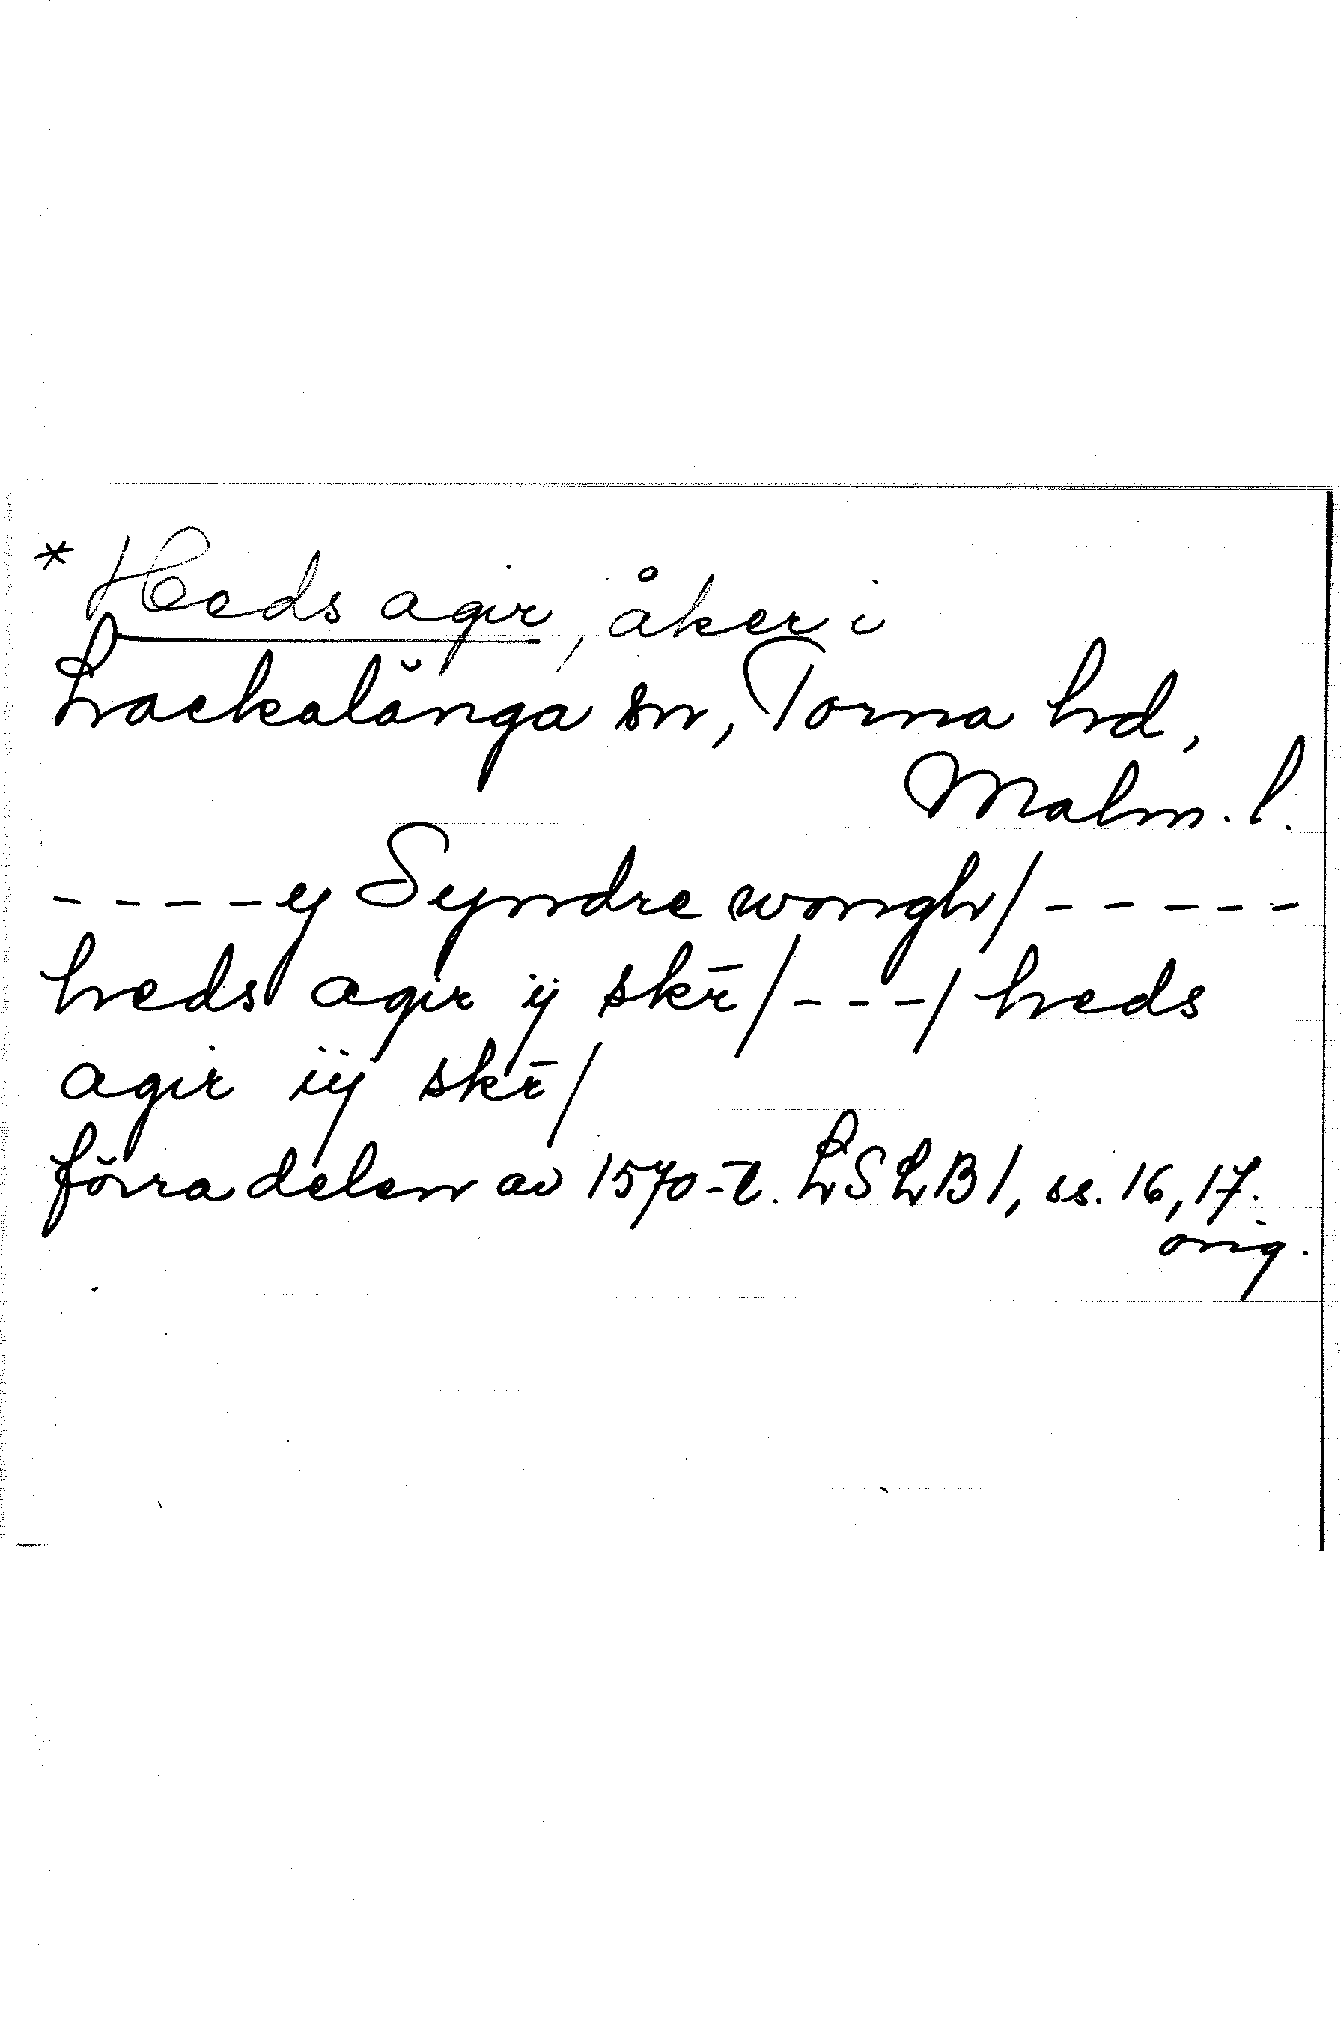 * Heds agir, åker i
Lackalänga sn, Torna hd,
Malm. l.
- - - - ey Syndre wongh/ - - - - -
heds agir ij skr̄/ - - - / heds
agir iij skr̄/
förra delen av 1570-t. LSLB1, ss. 16, 17.
orig.